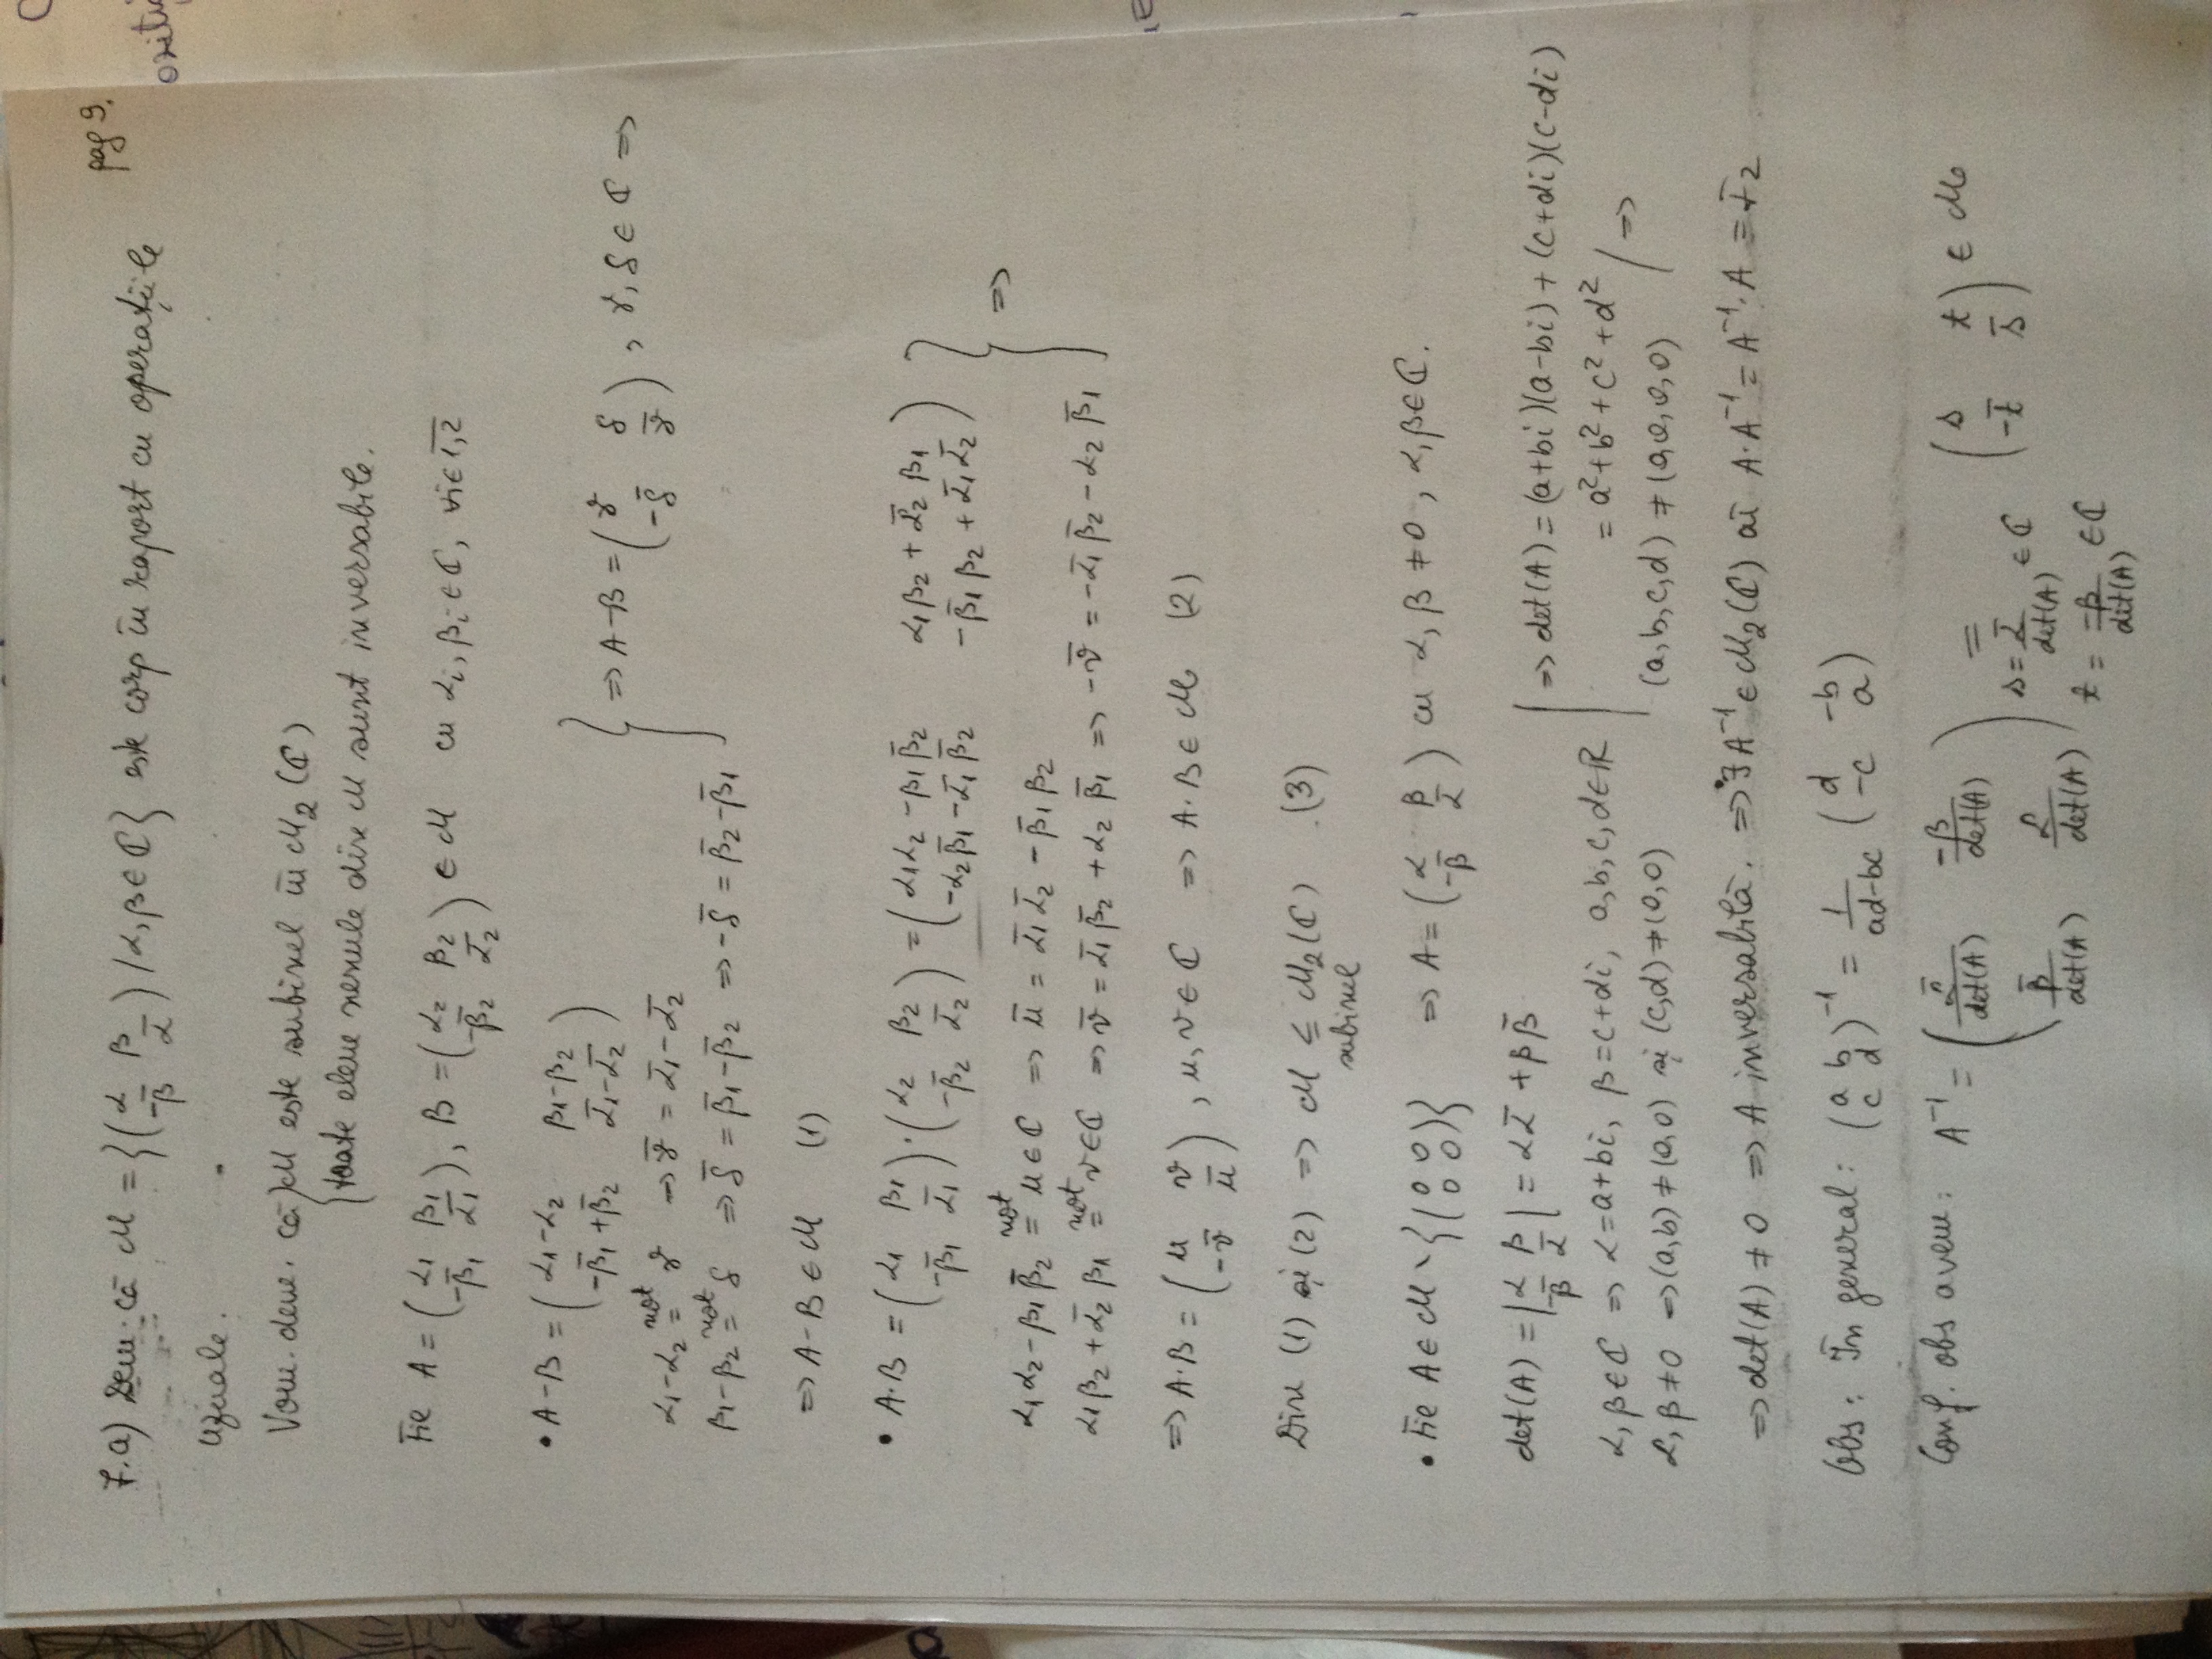 pag 9.
7.a) Dem. că M = {(α β / -β̄ ᾱ) / α, β ∈ ℂ} este corp în raport cu operațiile
uzuale.
Vom. dem. că } M este subinel în M₂(ℂ)
{ toate elem nenule din M sunt inversabile.
Fie A = (α₁ β₁ / -β̄₁ ᾱ₁), B = (α₂ β₂ / -β̄₂ ᾱ₂) ∈ M cu αᵢ, βᵢ ∈ ℂ, ∀i ∈ 1,2
• A-B = (α₁-α₂ β₁-β₂ / -β̄₁+β̄₂ ᾱ₁-ᾱ₂)
α₁-α₂ not= γ ⇒ γ̄ = ᾱ₁-ᾱ₂
β₁-β₂ not= δ ⇒ δ̄ = β̄₁-β̄₂ ⇒ -δ̄ = β̄₂-β̄₁
} ⇒ A-B = (γ δ / -δ̄ γ̄), γ, δ ∈ ℂ ⇒
⇒ A-B ∈ M (1)
• A·B = (α₁ β₁ / -β̄₁ ᾱ₁)·(α₂ β₂ / -β̄₂ ᾱ₂) = (α₁α₂ - β₁β̄₂ α₁β₂ + ᾱ₂β₁ / -α₂β̄₁ - ᾱ₁β̄₂ -β̄₁β₂ + ᾱ₁ᾱ₂)
α₁α₂ - β₁β̄₂ not= u ∈ ℂ ⇒ ū = ᾱ₁ᾱ₂ - β̄₁β₂ } ⇒
α₁β₂ + ᾱ₂β₁ not= v ∈ ℂ ⇒ v̄ = ᾱ₁β̄₂ + α₂β̄₁ ⇒ -v̄ = -ᾱ₁β̄₂ - α₂β̄₁
⇒ A·B = (u v / -v̄ ū), u, v ∈ ℂ ⇒ A·B ∈ M (2)
Din (1) și (2) ⇒ M ≤ M₂(ℂ) (3)
subinel
• Fie A ∈ M \ {(0 0 / 0 0)} ⇒ A = (α β / -β̄ ᾱ) cu α, β ≠ 0, α, β ∈ ℂ.
det(A) = |α β / -β̄ ᾱ| = αᾱ + ββ̄
α, β ∈ ℂ ⇒ α = a+bi, β = c+di, a, b, c, d ∈ ℝ
α, β ≠ 0 ⇒ (a,b) ≠ (0,0) și (c,d) ≠ (0,0)
| ⇒ det(A) = (a+bi)(a-bi) + (c+di)(c-di)
= a² + b² + c² + d²
(a,b,c,d) ≠ (0,0,0,0) | ⇒
⇒ det(A) ≠ 0 ⇒ A inversabilă. ⇒ ∃ A⁻¹ ∈ M₂(ℂ) aî A·A⁻¹ = A⁻¹·A = I₂
Obs: În general: (a b / c d)⁻¹ = 1/(ad-bc) (d -b / -c a)
Conf. obs avem: A⁻¹ = (ᾱ/det(A) -β/det(A) / β̄/det(A) α/det(A)) = (s t / -t̄ s̄) ∈ M
s = ᾱ/det(A) ∈ ℂ
t = -β/det(A) ∈ ℂ